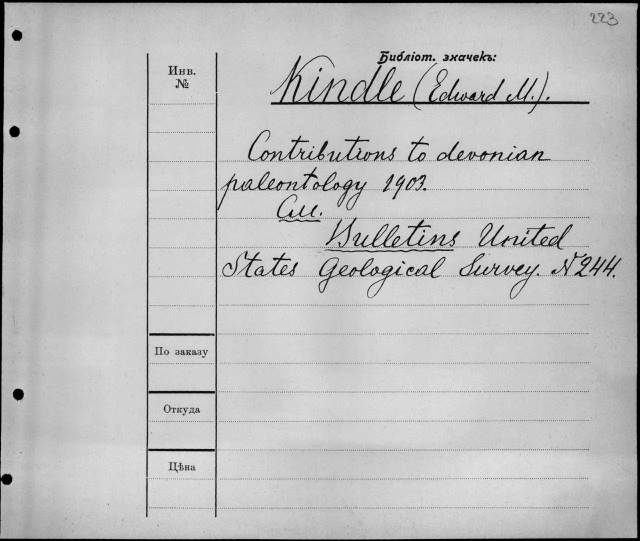 223
Библіот. значекъ:
Инв.
№
Kindle (Edward M.).
Contributions to devonian
paleontology 1903.
См.
Bulletins United
States Geological Survey. N 244.
По заказу
Откуда
Цѣна